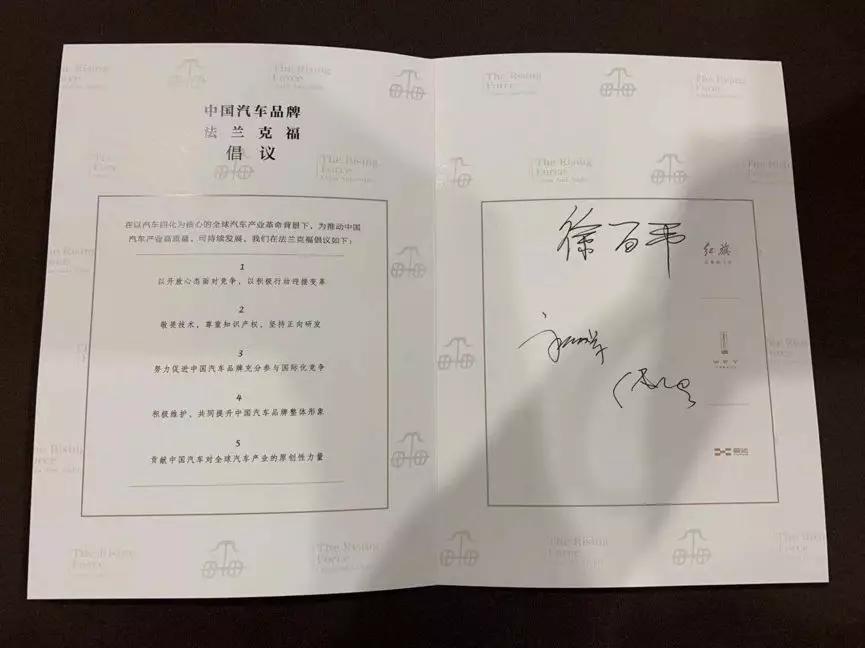 The Rising
Force
中国汽车品牌
法兰克福
倡议
The Rising
Force
在以汽车四化为核心的全球汽车产业革命背景下，为推动中国
汽车产业高质量、可持续发展，我们在法兰克福倡议如下：
1
以开放心态面对竞争，以积极行动迎接变革
2
敬畏技术，尊重知识产权，坚持正向研发
3
努力促进中国汽车品牌充分参与国际化竞争
4
积极维护、共同提升中国汽车品牌整体形象
5
贡献中国汽车对全球汽车产业的原创性力量
The Rising
Force
The Rising
Force
The Rising
Force
The Rising
Force
The Rising
Force
徐百
红旗
WEY
The Rising
Force